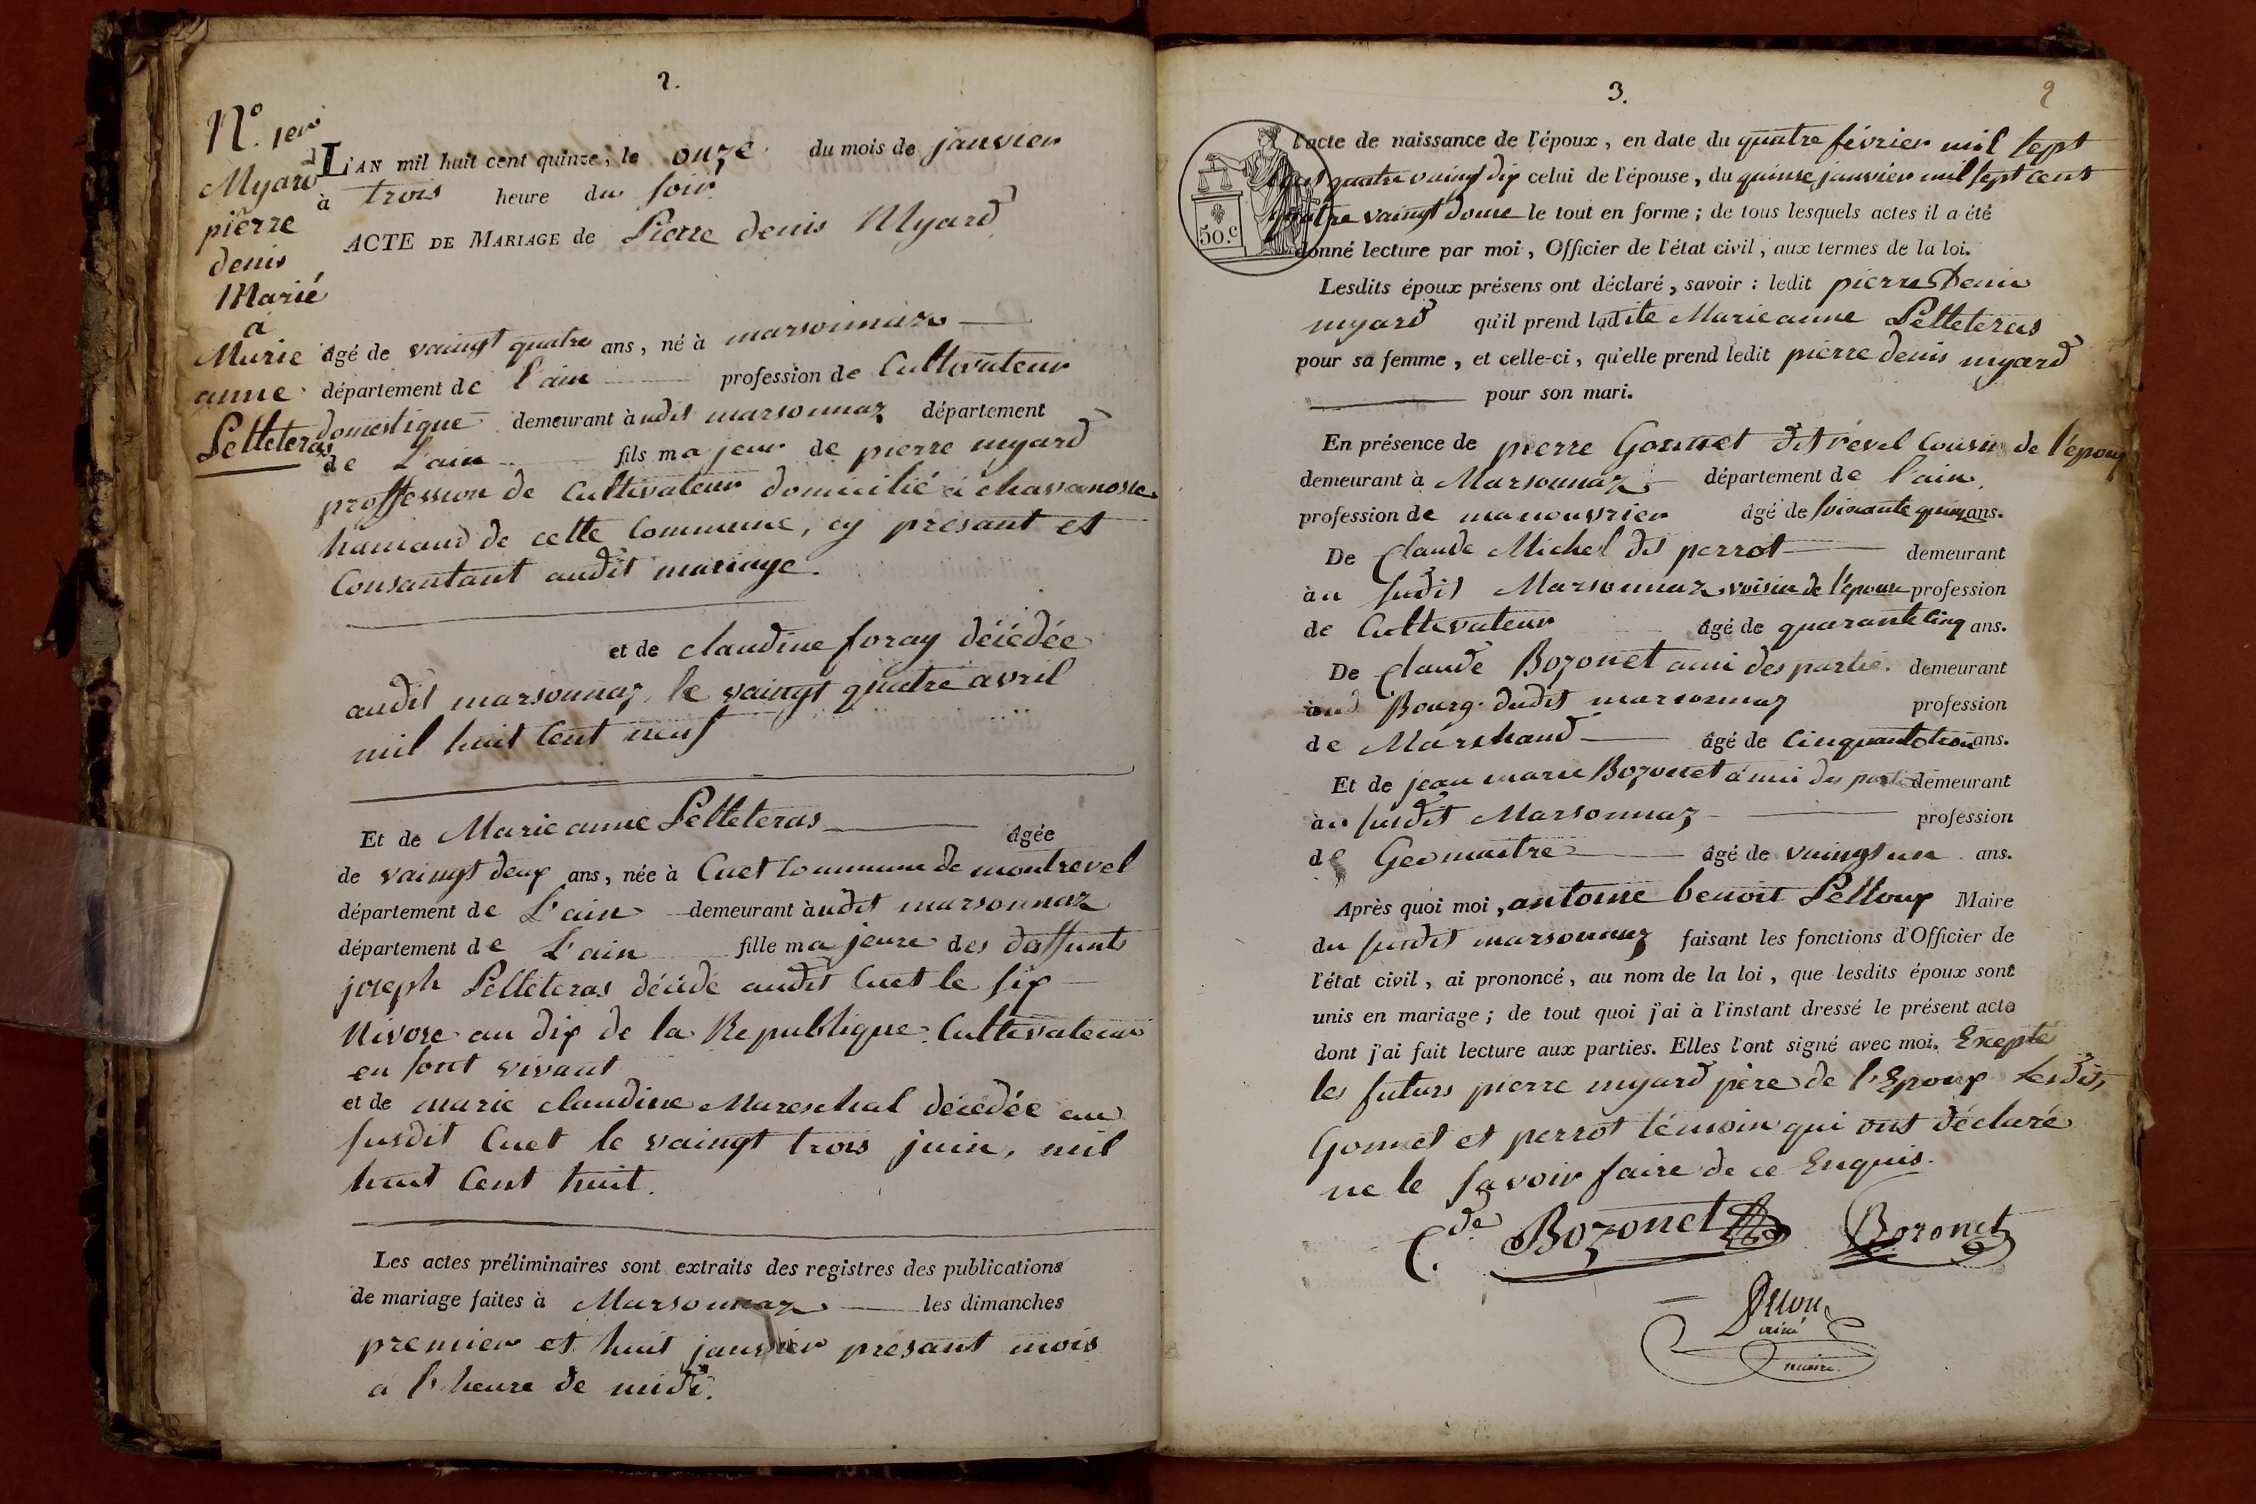 2.
N.o 1er
Myard
pierre
denis
Marié
à
Marie
anne
Pelleteras
L'AN mil huit cent quinze, le onze du mois de janvier
à trois heure du soir
ACTE DE MARIAGE de Pierre denis Myard
âgé de vaingt quatre ans, né à marsonnaz
département de l'ain profession de Cultivateur
domestique demeurant àudit marsonnaz département
de L'ain fils majeur de pierre myard
proffession de Cultivateur domicilié à chavanosse
hamaud de cette Commune, cy présant et
Consantant audit mariage.
et de claudine foray décédée
audit marsonnaz, le vaingt quatre avril
mil huit Cent neuf
Et de Marie anne Pelleteras âgée
de vaingt deux ans, née à Cuet Commune de montrevel
département de L'ain demeurant àudit marsonnaz
département de L'ain fille majeure des deffunts
joseph Pelleteras décédé audit Cuet le six
Nivose an dix de la Republique. Cultivateur
en sont vivant
et de marie claudine Mareschal décédée au
susdit Cuet le vaingt trois juin, mil
huit Cent huit.
Les actes préliminaires sont extraits des registres des publications
de mariage faites à Marsonnaz les dimanches
premier et huit janvier présant mois
à l'heure de midi.
3.
2
50.c
l'acte de naissance de l'époux, en date du quatre février mil sept
cent quatre vaingt dix celui de l'épouse, du quinse janvier mil sept cent
quatre vaingt douse le tout en forme; de tous lesquels actes il a été
donné lecture par moi, Officier de l'état civil, aux termes de la loi.
Lesdits époux présens ont déclaré, savoir: ledit pierre Denis
myard qu'il prend ladite Marie anne Pelleteras
pour sa femme, et celle-ci, qu'elle prend ledit pierre denis myard
pour son mari.
En présence de pierre Gonnet dit rével Cousin de l'époux
demeurant à Marsonnaz département de l'ain
profession de manouvrier âgé de soixante quinz ans.
De Claude Michel dit perrot demeurant
àu susdit Marsonnaz voisin de l'épouse profession
de Cultivateur âgé de quarante cinq ans.
De Claude Bozonet ami des partie. demeurant
àud Bourg dudit marsonnaz profession
de Marchand âgé de Cinquante trois ans.
Et de jean marie Bozonet ami des partie demeurant
àu susdit Marsonnaz profession
de Geomaitre âgé de vaingt un ans.
Après quoi moi, antoine benoit Pelloux Maire
du susdit marsonnaz faisant les fonctions d'Officier de
l'état civil, ai prononcé, au nom de la loi, que lesdits époux sont
unis en mariage; de tout quoi j'ai à l'instant dressé le présent acte
dont j'ai fait lecture aux parties. Elles l'ont signé avec moi. Exepté
les futurs pierre myard père de l'Epoux Lesdits
Gonnet et perrot témoin qui ont déclaré
ne le savoir faire de ce Enquis.
C.de Bozonet Bozonet
Pellou
ainé
maire